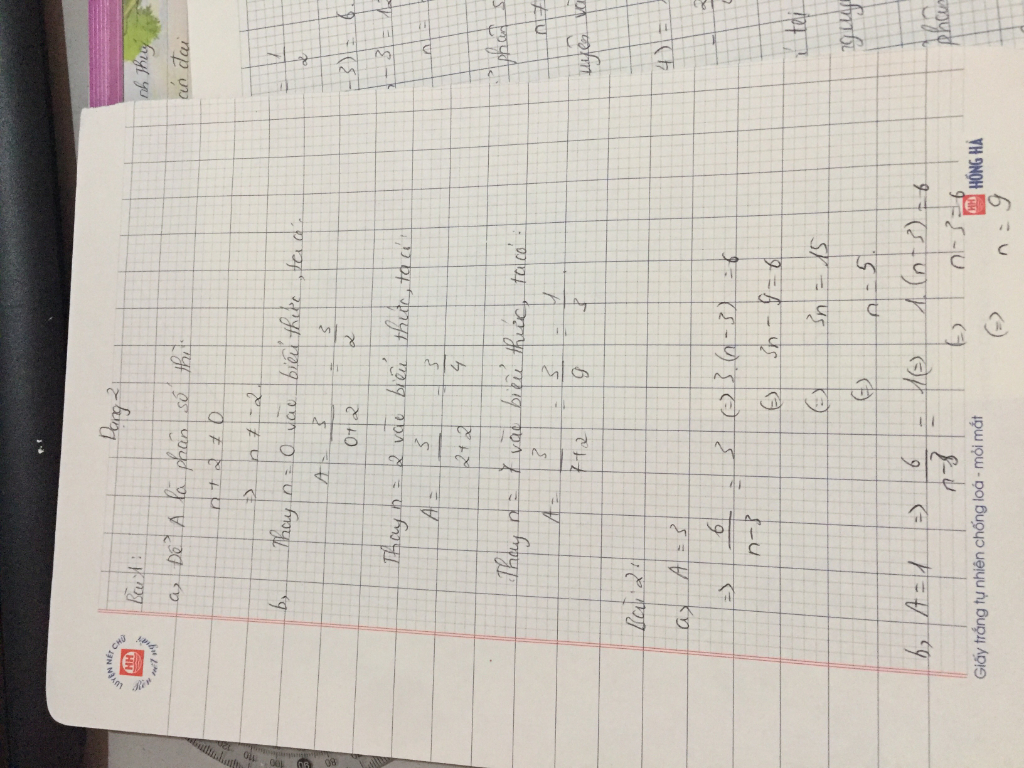 Dạng 2
Bài 1:
a, Để A là phân số thì:
n + 2 ≠ 0
=> n ≠ -2.
b, Thay n = 0 vào biểu thức, ta có:
A = 3/(0+2) = 3/2
Thay n = 2 vào biểu thức, ta có:
A = 3/(2+2) = 3/4
Thay n = 7 vào biểu thức, ta có:
A = 3/(7+2) = 3/9 = 1/3
Bài 2:
a, A = 3
=> 6/(n-3) = 3 (=) 3.(n-3) = 6
(=) 3n - 9 = 6
(=) 3n = 15
(=) n = 5.
b, A = 1 => 6/(n-3) = 1 (=) 1.(n-3) = 6
(=) n-3 = 6
(=) n = 9
LUYỆN NÉT CHỮ
Rèn nết người
HH
Giấy trắng tự nhiên chống loá - mỏi mắt
HH HỒNG HÀ
= 1/2
-3) = 6.
n =
phân s
n ≠
4) =
phân